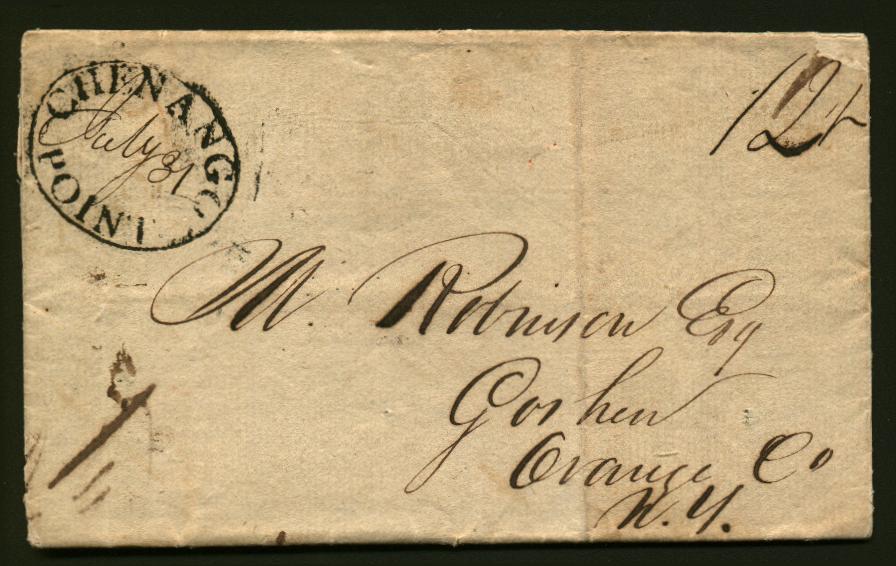 CHENANGO POINT
July 31
12½
M. Robinson Esq
Goshen
Orange Co
N.Y.